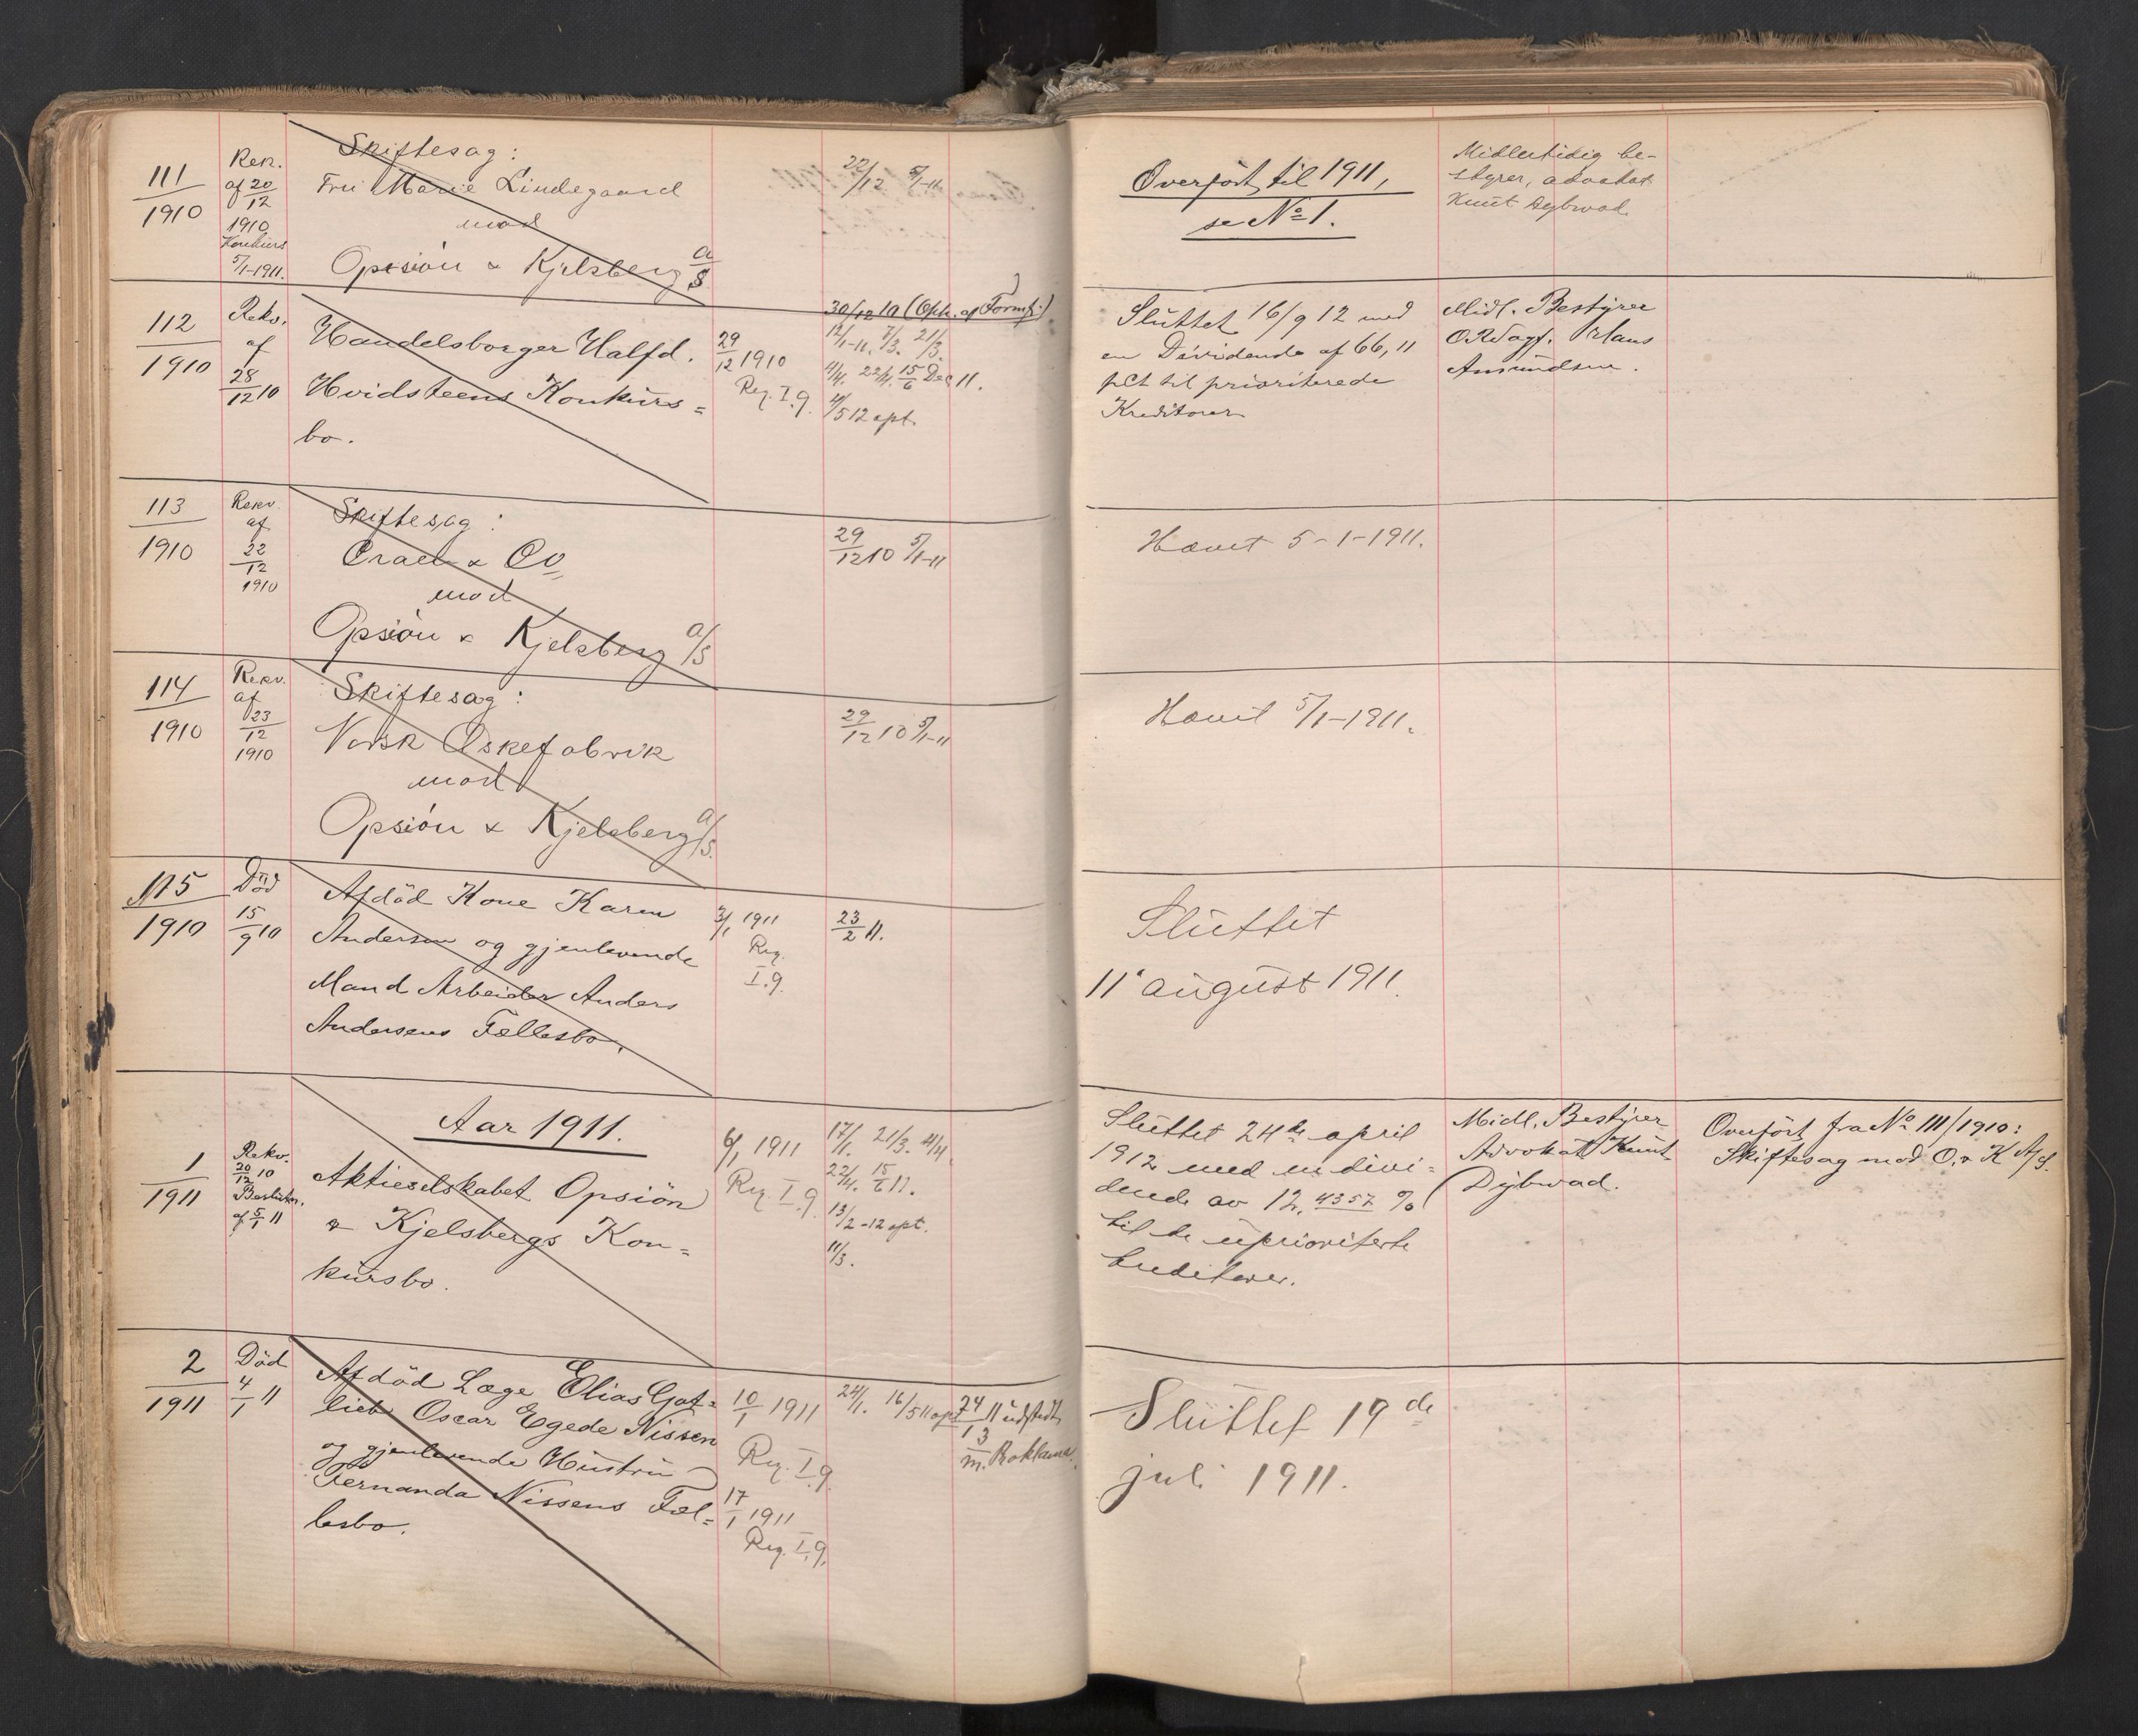 111
1910
Rek.
af 20/12
1910
Konkurs
5/1-1911.
Skiftesag:
Fru Marie Lindegaard
mod
Opsiön & Kjelsberg A/S
22/12 5/1-11
Overført til 1911,
se No 1.
Midlertidig be-
styrer, advokat
Knut Dybwad.
112
1910
Rekv.
af
28/12 10
Handelsborger Halfd.
Hvidsteens Konkurs=
bo.
29/12 1910
Reg. I.9.
30/12 10 (Oph. af Formf.)
12/1-11. 7/3. 21/3.
4/4. 22/4. 15/6 Dec 11.
4/5 12 opt.
Sluttet 16/9 12 med
en Dividende af 66,11
pct til prioriterede
Kreditorer
Midl. Bestyrer
ORSagf. Hans
Amundsen.
113
1910
Rekv.
af
22/12
1910
Skiftesag:
& Co
mod
Opsiön & Kjelsberg A/S
29/12 10 5/1-11
Hævet 5-1-1911.
114
1910
Rekv.
af
23/12
1910
Skiftesag:
Norsk Æskefabrik
mod
Opsiön & Kjelsberg A/S.
29/12 10 5/1-11
Hævet 5/1-1911.
115
1910
Död
15/9 10
Afdöd Kone Karen
Andersen og gjenlevende
Mand Arbeider Anders
Andersens Fællesbo.
3/1 1911
Reg.
I.9.
23/2 11.
Sluttet
11' august 1911.
Aar 1911.
1
1911
Rekv.
20/12 10
Beslutn.
af 5/1 11
Aktieselskabet Opsiön
& Kjelsbergs Kon=
kursbo.
6/1 1911
Reg. I.9.
17/1. 21/3. 4/4
22/4. 15/6 11.
13/2-12 opt.
11/3.
Sluttet 24de april
1912 med en divi=
dende av 12,4357 %
til de uprioriterte
kreditorer.
Midl. Bestyrer
Advokat Knut
Dybwad.
Overført fra No 111/1910:
Skiftesag mod O. & K A/S.
2
1911
Död
4/1 11
Afdöd Læge Elias Got=
lieb Oscar Egede Nissen
og gjenlevende Hustru
Fernanda Nissens Fæl=
lesbo.
10/1 1911
Reg. I.9.
17/1 1911
Reg. I.9.
24/1. 16/5 11 opt
24/1 11 udstedt
3
m.
Sluttet 19de
juli 1911.